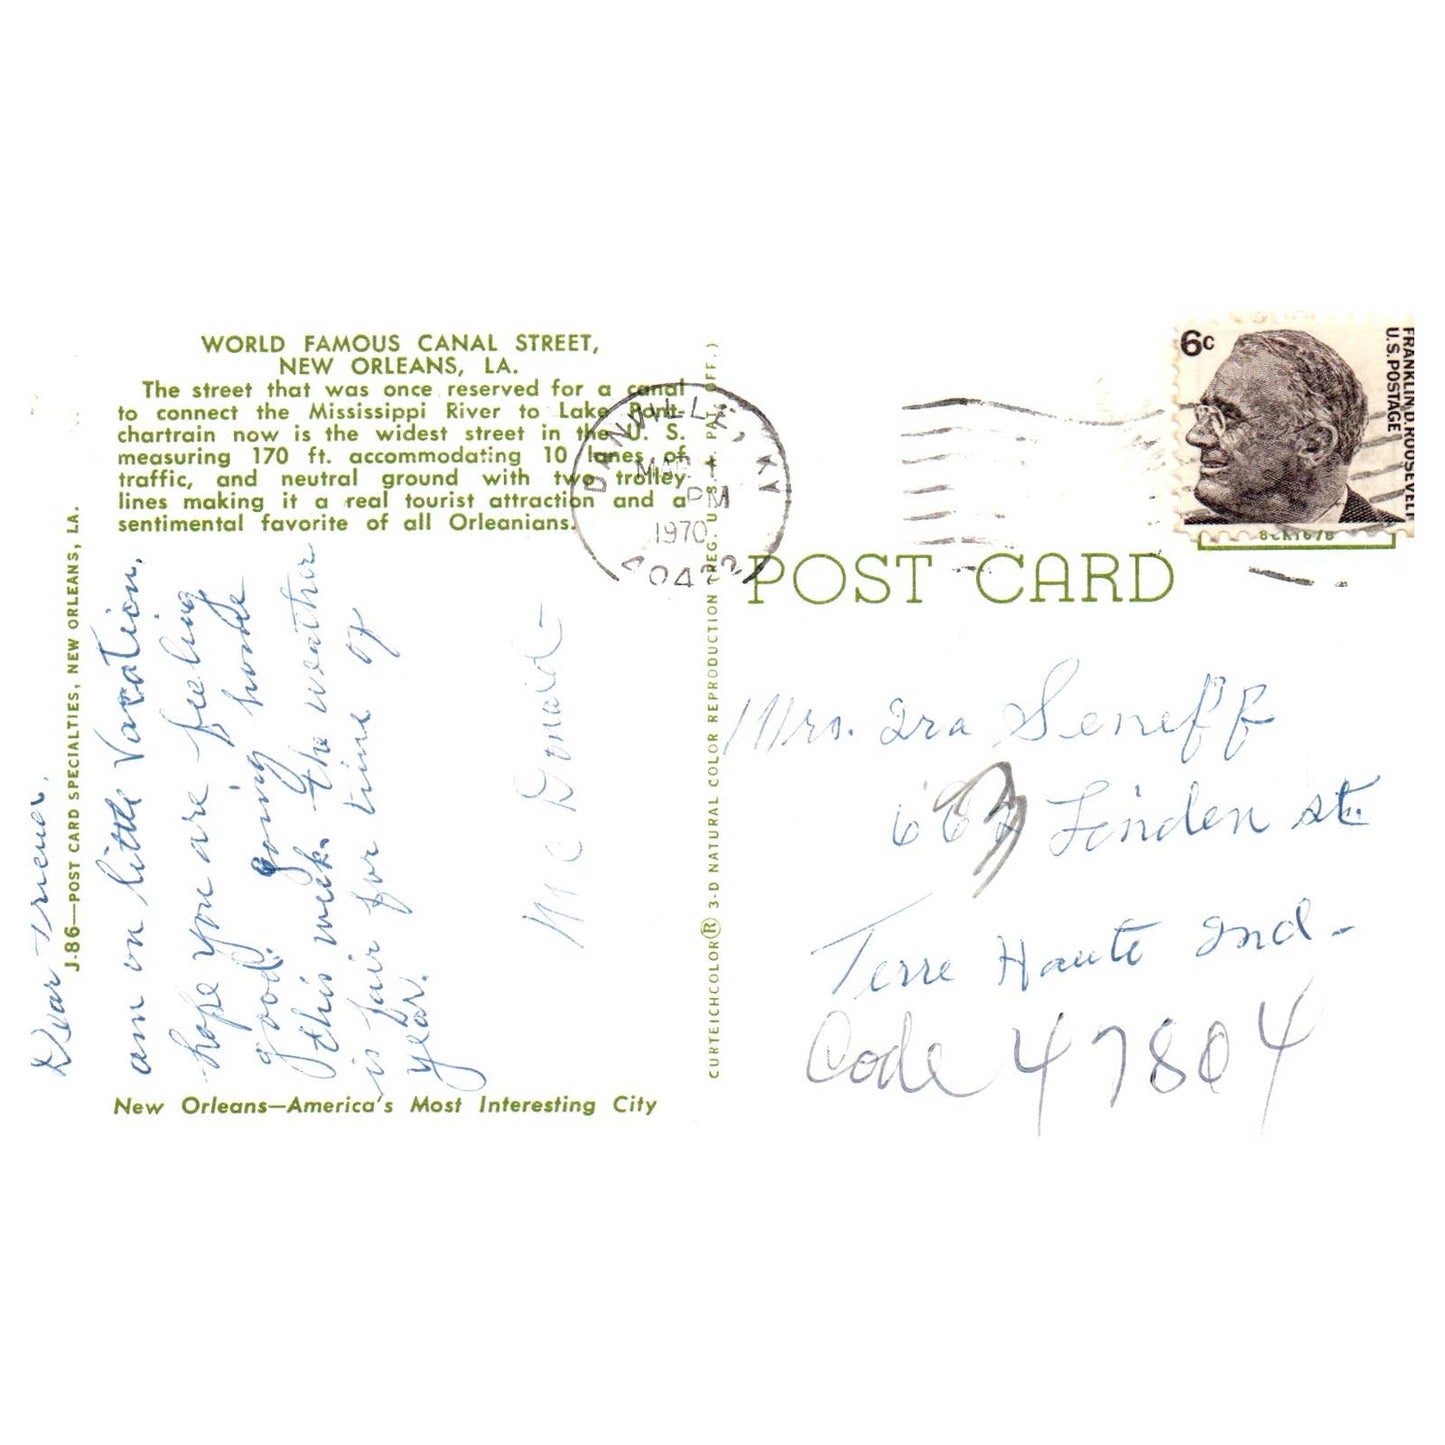 WORLD FAMOUS CANAL STREET,
NEW ORLEANS, LA.
The street that was once reserved for a canal
to connect the Mississippi River to Lake Pont-
chartrain now is the widest street in the U. S.
measuring 170 ft. accommodating 10 lanes of
traffic, and neutral ground with two trolley
lines making it a real tourist attraction and a
sentimental favorite of all Orleanians.
J-86—POST CARD SPECIALTIES, NEW ORLEANS, LA.
Dear Irene,
am on little Vacation,
hope you are feeling
good. going home
this week. the weather
is fair for time of
year.
Mc Donald—
New Orleans—America's Most Interesting City
CURTEICHCOLOR® 3-D NATURAL COLOR REPRODUCTION (REG. U.S.A. PAT. OFF.)
DANVILLE, KY
MAR
PM
1970
40422
6c
FRANKLIN D. ROOSEVELT
U.S. POSTAGE
8CK1678
POST CARD
Mrs. Ira Seneff
Linden St.
Terre Haute Ind-
Code 47804